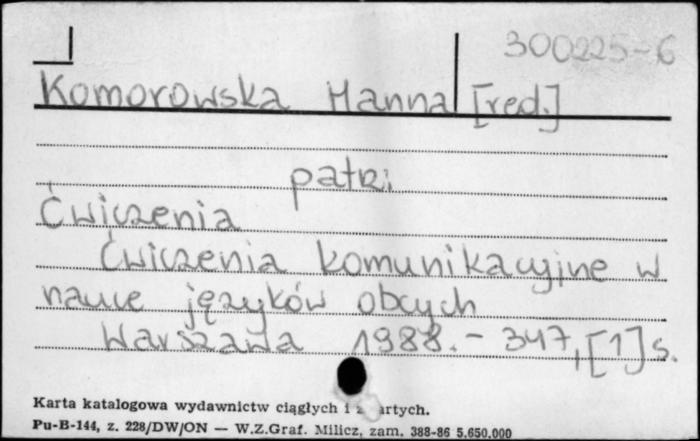 300225-6
Komorowska Hanna [red.]
patrz
Ćwiczenia
Ćwiczenia komunikacyjne w
nauce języków obcych
Warszawa 1988. - 347, [1] s.
Karta katalogowa wydawnictw ciągłych i zwartych.
Pu-B-144, z. 228/DW/ON — W.Z.Graf. Milicz, zam. 388-86 5.650.000